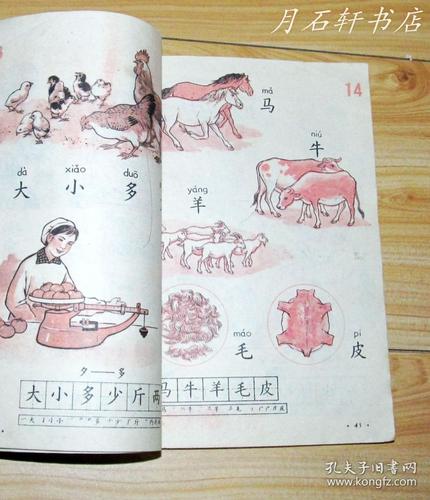 月石轩书店
dà xiǎo duō
大 小 多
夕——多
大小多少斤两
14
mǎ
马
niú
牛
yáng
羊
máo
毛
pí
皮
马牛羊毛皮
·45·
孔夫子旧书网
www.kongfz.com